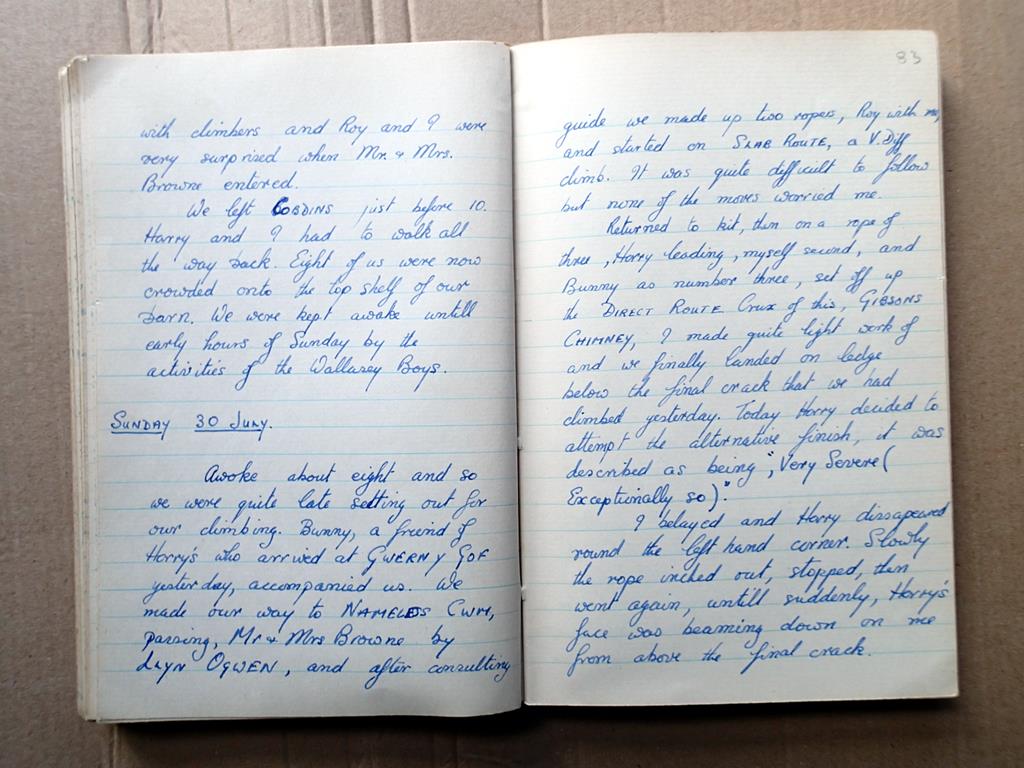 with climbers and Roy and I were
very surprised when Mr. & Mrs.
Browne entered.
We left COBDINS just before 10.
Harry and I had to walk all
the way back. Eight of us were now
crowded onto the top shelf of our
barn. We were kept awake untill
early hours of Sunday by the
activities of the Wallasey Boys.
SUNDAY 30 JULY.
Awoke about eight and so
we were quite late setting out for
our climbing. Bunny, a friend of
Harry's who arrived at GWERN Y GOF
yesterday, accompanied us. We
made our way to NAMELESS CWM,
passing, Mr & Mrs Browne by
LLYN OGWEN, and after consulting
83
guide we made up two ropes, Roy with me,
and started on SLAB ROUTE, a V.Diff
climb. It was quite difficult to follow
but none of the moves worried me.
Returned to kit, then on a rope of
three, Harry leading, myself second, and
Bunny as number three, set off up
the DIRECT ROUTE Crux of this, GIBSONS
CHIMNEY, I made quite light work of
and we finally landed on ledge
below the final crack that we had
climbed yesterday. Today Harry decided to
attempt the alternative finish, it was
described as being, "Very Severe (
Exceptionally so)."
I belayed and Harry dissapeared
round the left hand corner. Slowly
the rope inched out, stopped, then
went again, untill suddenly, Harry's
face was beaming down on me
from above the final crack.